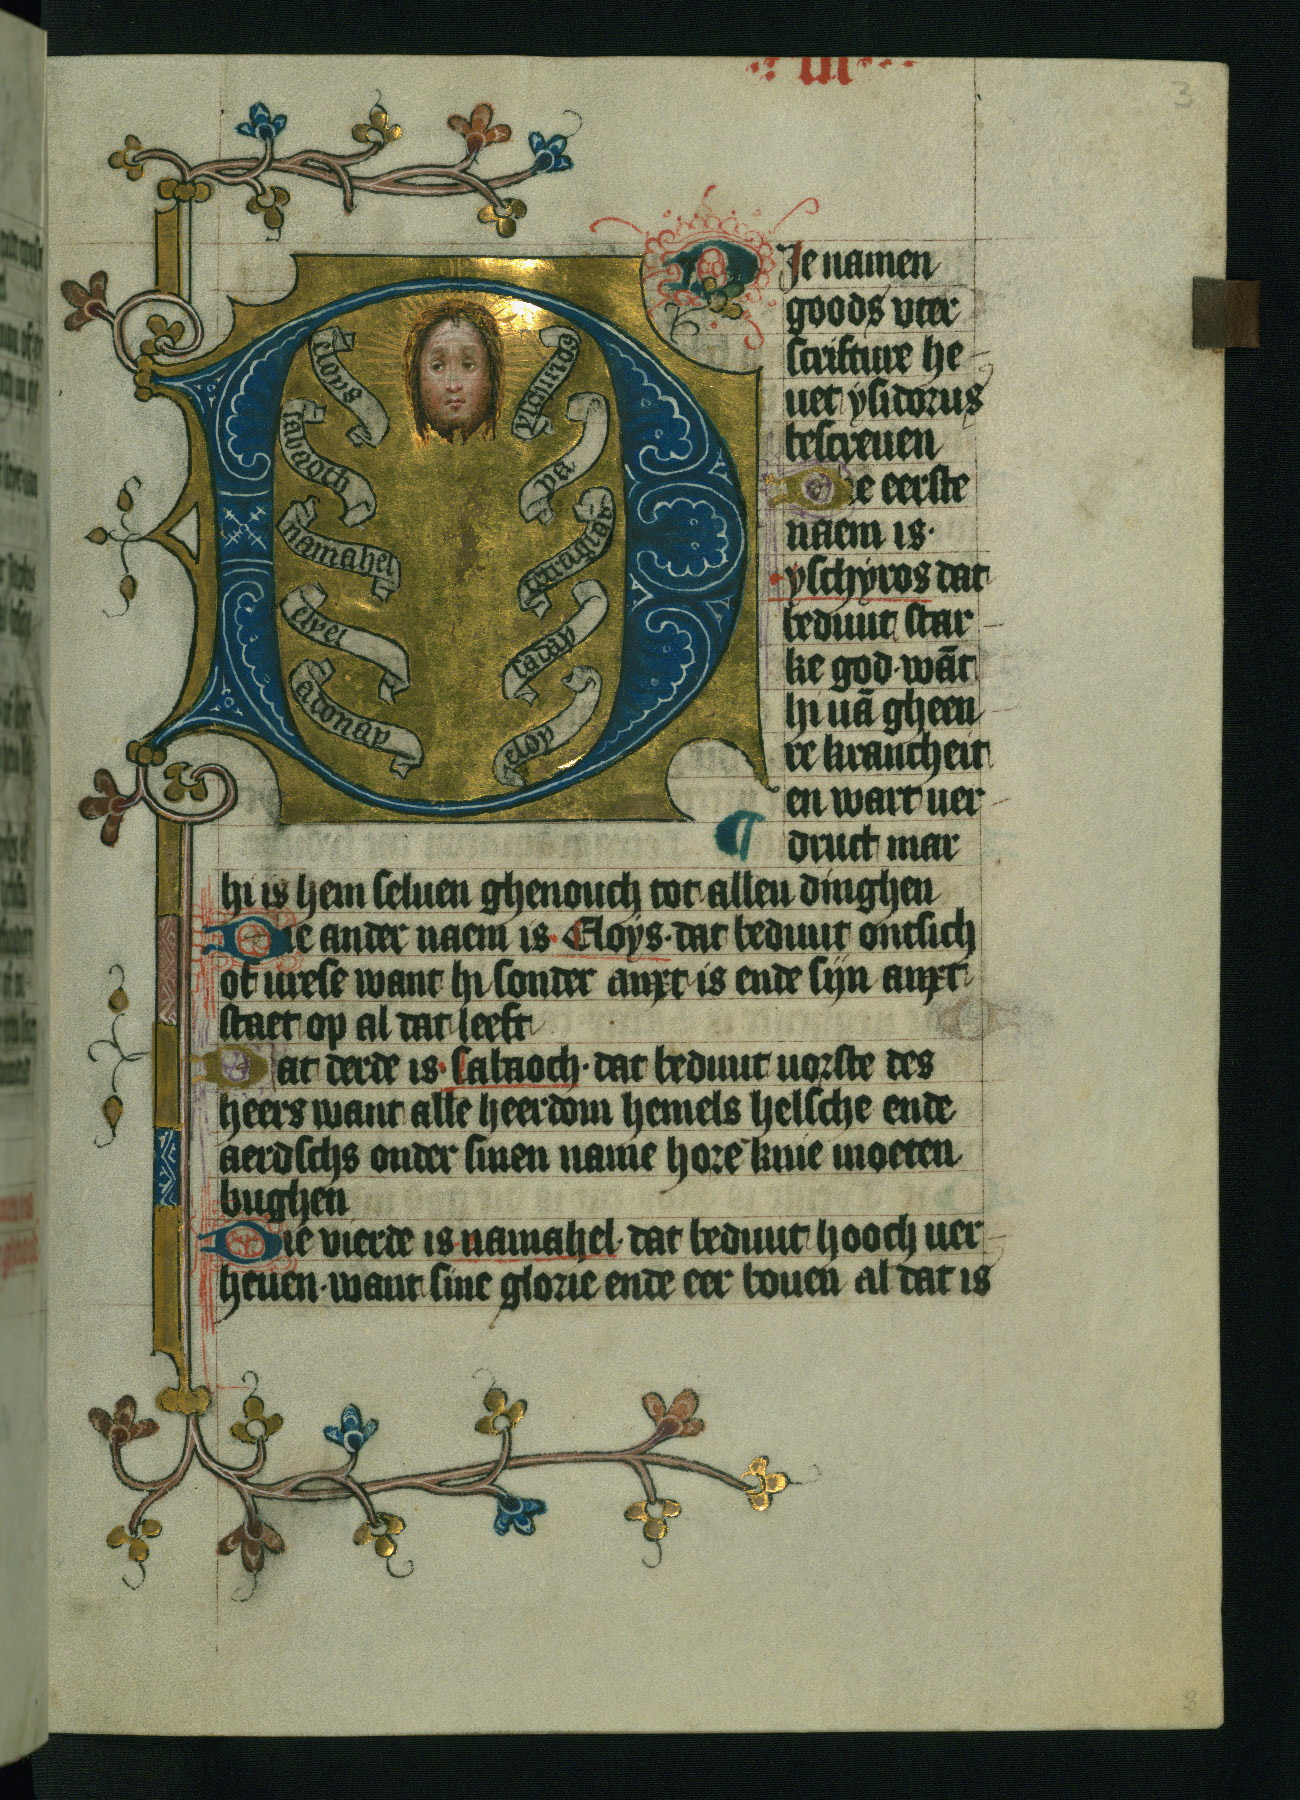 III
3
eloys
sabaoth
namahel
elyel
adonay
yschiros
ya
saday
eloy
Die namen
goods uter
scrifture he
uet ysidorus
bescreuen
Die eerste
naem is·
yschyros dat
beduut star
ke god· wāt
hi uā gheen
re krancheit
en wart uer
druct mar
hi is hem seluen ghenouch tot allen dinghen
Die ander naem is· Eloys· dat beduut ontsich
of urese want hi sonder anxt is ende sijn anxt
staet op al dat leeft
Dat derde is· sabaoch· dat beduut uorste des
heers want alle heerdom hemels helsche ende
aerdschs onder sinen name hore knie moeten
bughen
Die vierde is namahel· dat beduut hooch uer
heuen· want sine glorie ende eer bouen al dat is